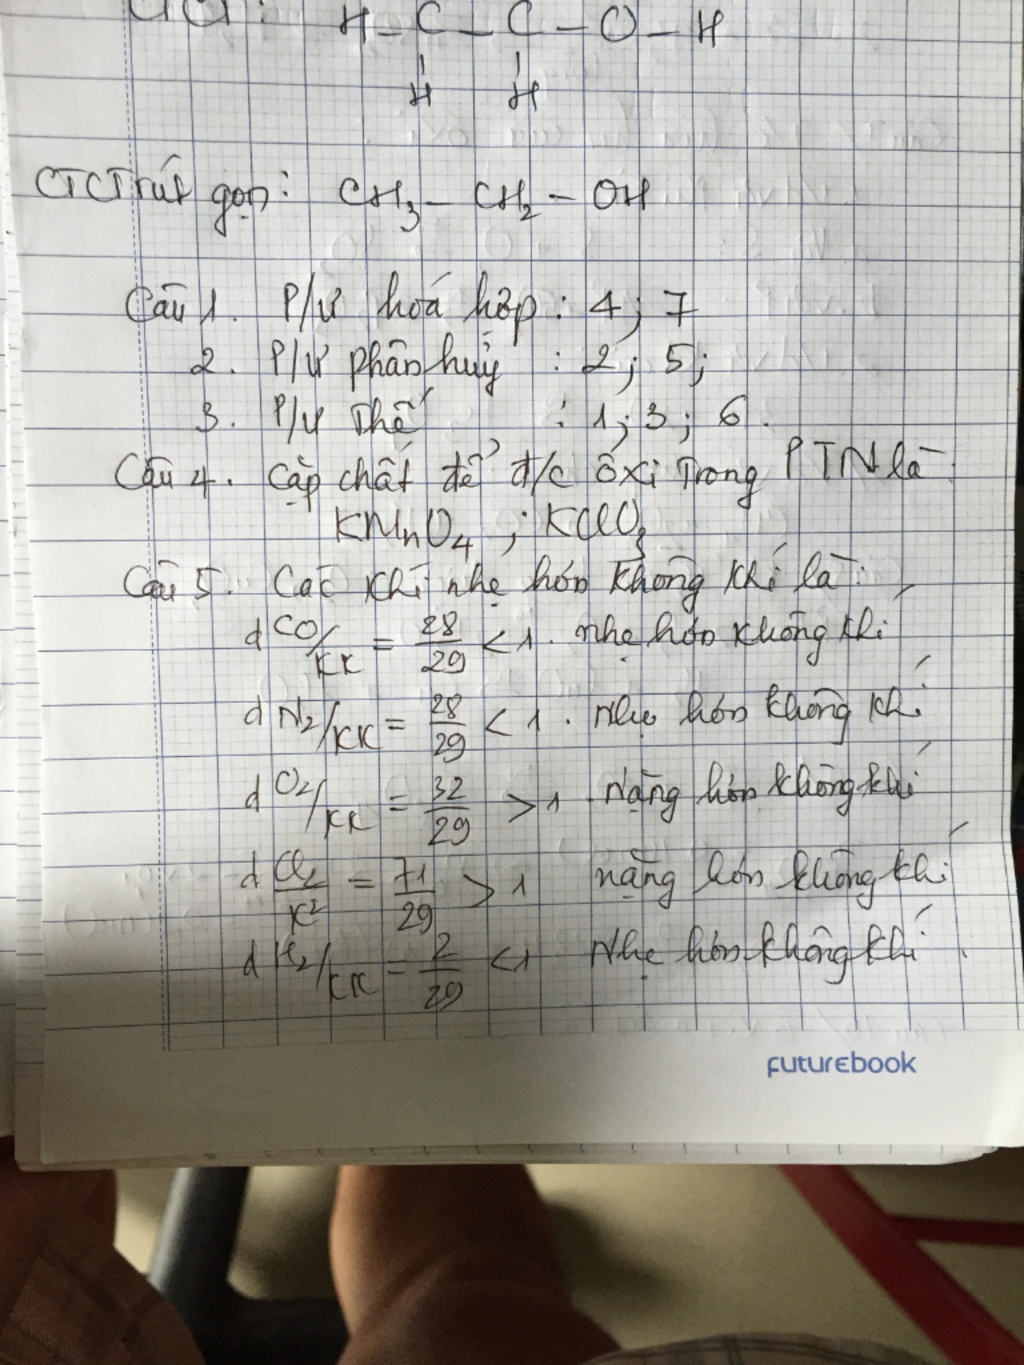 H - C - C - O - H
H H
CTCT rút gọn: CH₃ - CH₂ - OH
Câu 1. P/ư hoá hợp : 4; 7
2. P/ư phân huỷ : 2; 5;
3. P/ư Thế : 1; 3; 6.
Câu 4. Cặp chất để đ/c ôxi Trong PTN là
KMnO₄ ; KClO₃
Câu 5. Các khí nhẹ hơn không khí là:
d CO/KK = 28/29 < 1. nhẹ hơn không khí
d N₂/KK = 28/29 < 1. Nhẹ hơn không khí
d O₂/KK = 32/29 > 1. Nặng hơn không khí
d Cl₂/K² = 71/29 > 1 nặng hơn không khí
d H₂/KK = 2/29 < 1 Nhẹ hơn không khí
FUTUREBOOK